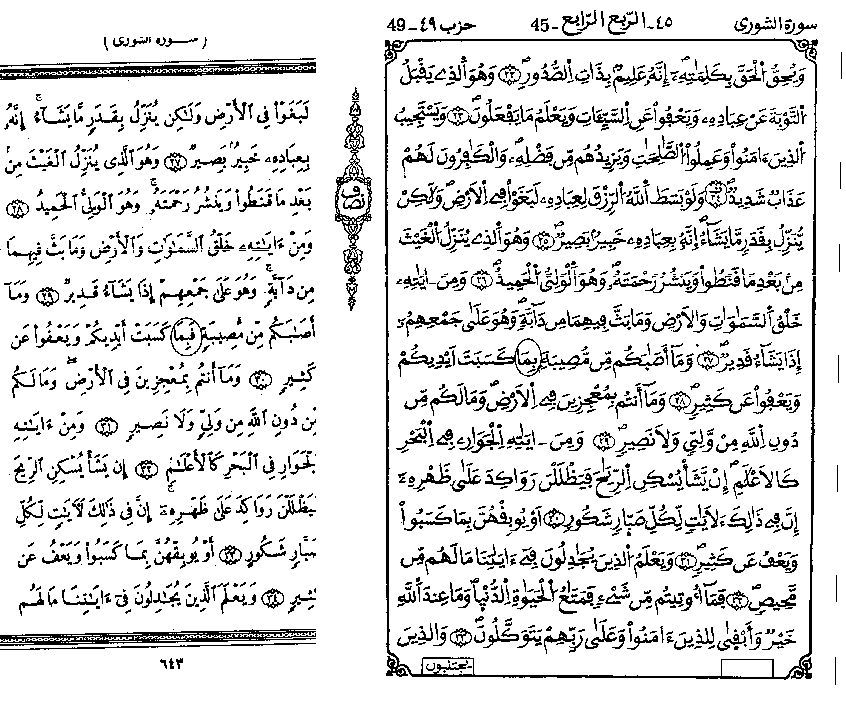 سورة الشورى
٤٥ـ الربع الرابع -45
حزب ٤٩ـ 49
وَيُحِقُّ الْحَقَّ بِكَلِمَٰتِهِۦٓ إِنَّهُۥ عَلِيمٌۢ بِذَاتِ اِ۬لصُّدُورِ ٢٢ وَهُوَ اَ۬لذِے يَقْبَلُ
اُ۬لتَّوْبَةَ عَنْ عِبَادِهِۦ وَيَعْفُواْ عَنِ اِ۬لسَّيِّـَٔاتِ وَيَعْلَمُ مَا يَفْعَلُونَ ٢٣ وَيَسْتَجِيبُ
اُ۬لذِينَ ءَامَنُواْ وَعَمِلُواْ اُ۬لصَّٰلِحَٰتِ وَيَزِيدُهُم مِّن فَضْلِهِۦ وَالْكَٰفِرُونَ لَهُمْ
عَذَابٌ شَدِيدٌ ٢٤ وَلَوْ بَسَطَ اَ۬للَّهُ اُ۬لرِّزْقَ لِعِبَادِهِۦ لَبَغَوْاْ فِے اِ۬لَارْضِ وَلَٰكِنْ
يُّنَزِّلُ بِقَدَرٍ مَّا يَشَآءُ اِنَّهُۥ بِعِبَادِهِۦ خَبِيرٌۢ بَصِيرٌ ٢٥ وَهُوَ اَ۬لذِے يُنَزِّلُ اُ۬لْغَيْثَ
مِنۢ بَعْدِ مَا قَنَطُواْ وَيَنشُرُ رَحْمَتَهُۥ وَهُوَ اَ۬لْوَلِىُّ اُ۬لْحَمِيدُ ٢٦ وَمِنَ اٰيَٰتِهِۦ
خَلْقُ اُ۬لسَّمَٰوَٰتِ وَالَارْضِ وَمَا بَثَّ فِيهِمَا مِن دَآبَّةٍ وَهُوَ عَلَىٰ جَمْعِهِمُۥٓ
إِذَا يَشَآءُ قَدِيرٌ ٢٧ وَمَآ أَصَٰبَكُم مِّن مُّصِيبَةٍۢ بِمَا كَسَبَتَ اَيْدِيكُمْ
وَيَعْفُواْ عَن كَثِيرٍ ٢٨ وَمَآ أَنتُم بِمُعْجِزِينَ فِے اِ۬لَارْضِ وَمَا لَكُم مِّن
دُونِ اِ۬للَّهِ مِنْ وَّلِىٍّ وَلَا نَصِيرٍ ٢٩ وَمِنَ اٰيَٰتِهِ اِ۬لْجَوَارِۦ فِے اِ۬لْبَحْرِ
كَالَاعْلَٰمِ إِنْ يَّشَأْ يُسْكِنِ اِ۬لرِّيَٰحَ فَيَظْلَلْنَ رَوَاكِدَ عَلَىٰ ظَهْرِهِۦٓ
إِنَّ فِے ذَٰلِكَ لَأٓيَٰتٍ لِّكُلِّ صَبَّارٍ شَكُورٍ ٣٠ اَوْ يُوبِقْهُنَّ بِمَا كَسَبُواْ
وَيَعْفُ عَن كَثِيرٍ ٣١ وَيَعْلَمُ اُ۬لذِينَ يُجَٰدِلُونَ فِےٓ ءَايَٰتِنَا مَا لَهُم مِّن
مَّحِيصٍ ٣٢ فَمَآ أُوتِيتُم مِّن شَےْءٍ فَمَتَٰعُ اُ۬لْحَيَوٰةِ اِ۬لدُّنْيَا وَمَا عِندَ اَ۬للَّهِ
خَيْرٌ وَأَبْقَىٰ لِلذِينَ ءَامَنُواْ وَعَلَىٰ رَبِّهِمْ يَتَوَكَّلُونَ ٣٣ وَالذِينَ
يجتنبون
نصف
( سـورة الشورى )
لَبَغَوْا۟ فِى ٱلْأَرْضِ وَلَٰكِن يُنَزِّلُ بِقَدَرٍ مَّا يَشَآءُ ۚ إِنَّهُۥ
بِعِبَادِهِۦ خَبِيرٌۢ بَصِيرٌ ٢٧ وَهُوَ ٱلَّذِى يُنَزِّلُ ٱلْغَيْثَ مِنۢ
بَعْدِ مَا قَنَطُوا۟ وَيَنشُرُ رَحْمَتَهُۥ ۚ وَهُوَ ٱلْوَلِىُّ ٱلْحَمِيدُ ٢٨
وَمِنْ ءَايَٰتِهِۦ خَلْقُ ٱلسَّمَٰوَٰتِ وَٱلْأَرْضِ وَمَا بَثَّ فِيهِمَا
مِن دَآبَّةٍ ۚ وَهُوَ عَلَىٰ جَمْعِهِمْ إِذَا يَشَآءُ قَدِيرٌ ٢٩ وَمَآ
أَصَٰبَكُم مِّن مُّصِيبَةٍ فَبِمَا كَسَبَتْ أَيْدِيكُمْ وَيَعْفُوا۟ عَن
كَثِيرٍ ٣٠ وَمَآ أَنتُم بِمُعْجِزِينَ فِى ٱلْأَرْضِ ۖ وَمَا لَكُم
مِّن دُونِ ٱللَّهِ مِن وَلِىٍّ وَلَا نَصِيرٍ ٣١ وَمِنْ ءَايَٰتِهِ
ٱلْجَوَارِ فِى ٱلْبَحْرِ كَٱلْأَعْلَٰمِ ٣٢ إِن يَشَأْ يُسْكِنِ ٱلرِّيحَ
فَيَظْلَلْنَ رَوَاكِدَ عَلَىٰ ظَهْرِهِۦٓ ۚ إِنَّ فِى ذَٰلِكَ لَءَايَٰتٍ لِّكُلِّ
صَبَّارٍ شَكُورٍ ٣٣ أَوْ يُوبِقْهُنَّ بِمَا كَسَبُوا۟ وَيَعْفُ عَن
كَثِيرٍ ٣٤ وَيَعْلَمَ ٱلَّذِينَ يُجَٰدِلُونَ فِىٓ ءَايَٰتِنَا مَا لَهُم
٦٤٣